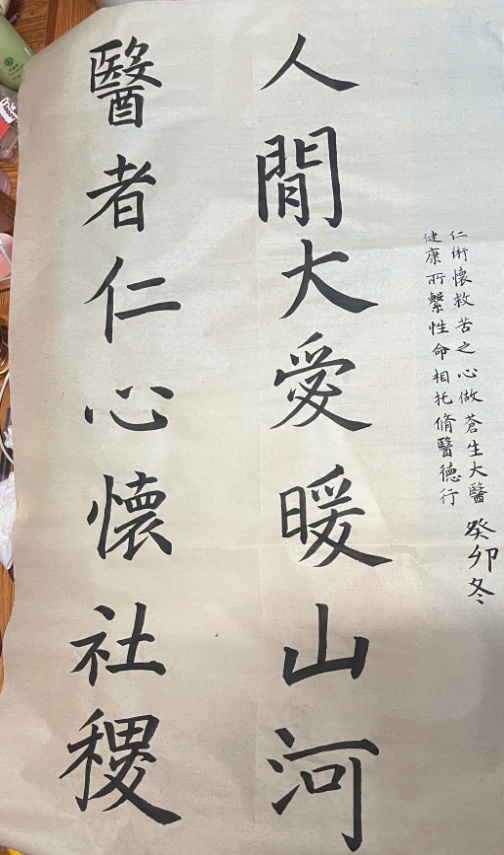 仁術懷救苦之心做蒼生大醫
健康所繫性命相托脩醫德行
癸卯冬
人閒大愛暖山河
醫者仁心懷社稷